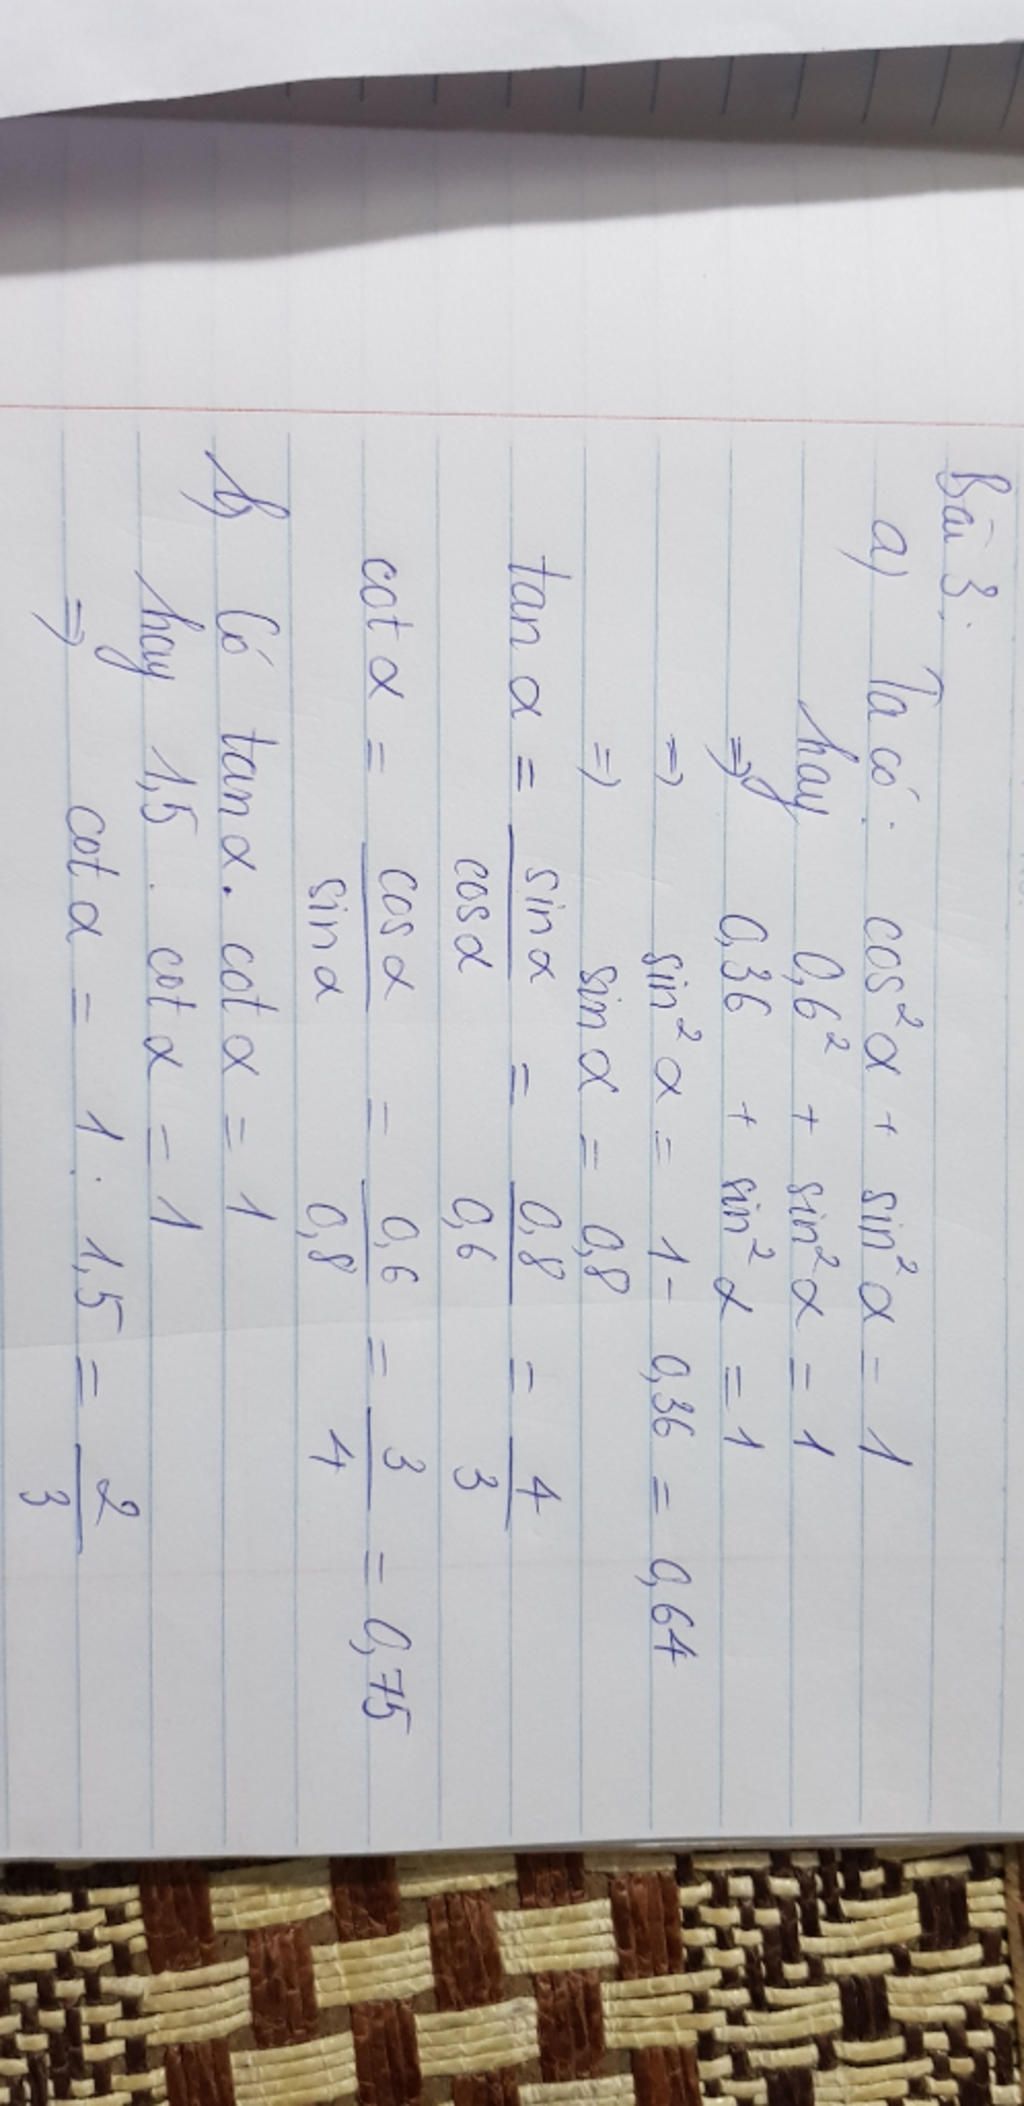 Bài 3:
a) Ta có: cos²α + sin²α = 1
hay 0,6² + sin²α = 1
=> 0,36 + sin²α = 1
=> sin²α = 1 - 0,36 = 0,64
=> sin α = 0,8
tan α = sin α / cos α = 0,8 / 0,6 = 4 / 3
cot α = cos α / sin α = 0,6 / 0,8 = 3 / 4 = 0,75
b) Có tan α . cot α = 1
hay 1,5 . cot α = 1
=> cot α = 1 : 1,5 = 2 / 3